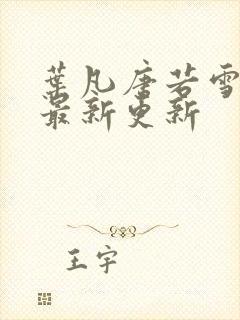 葉凡唐若雪
最新更新
王宇